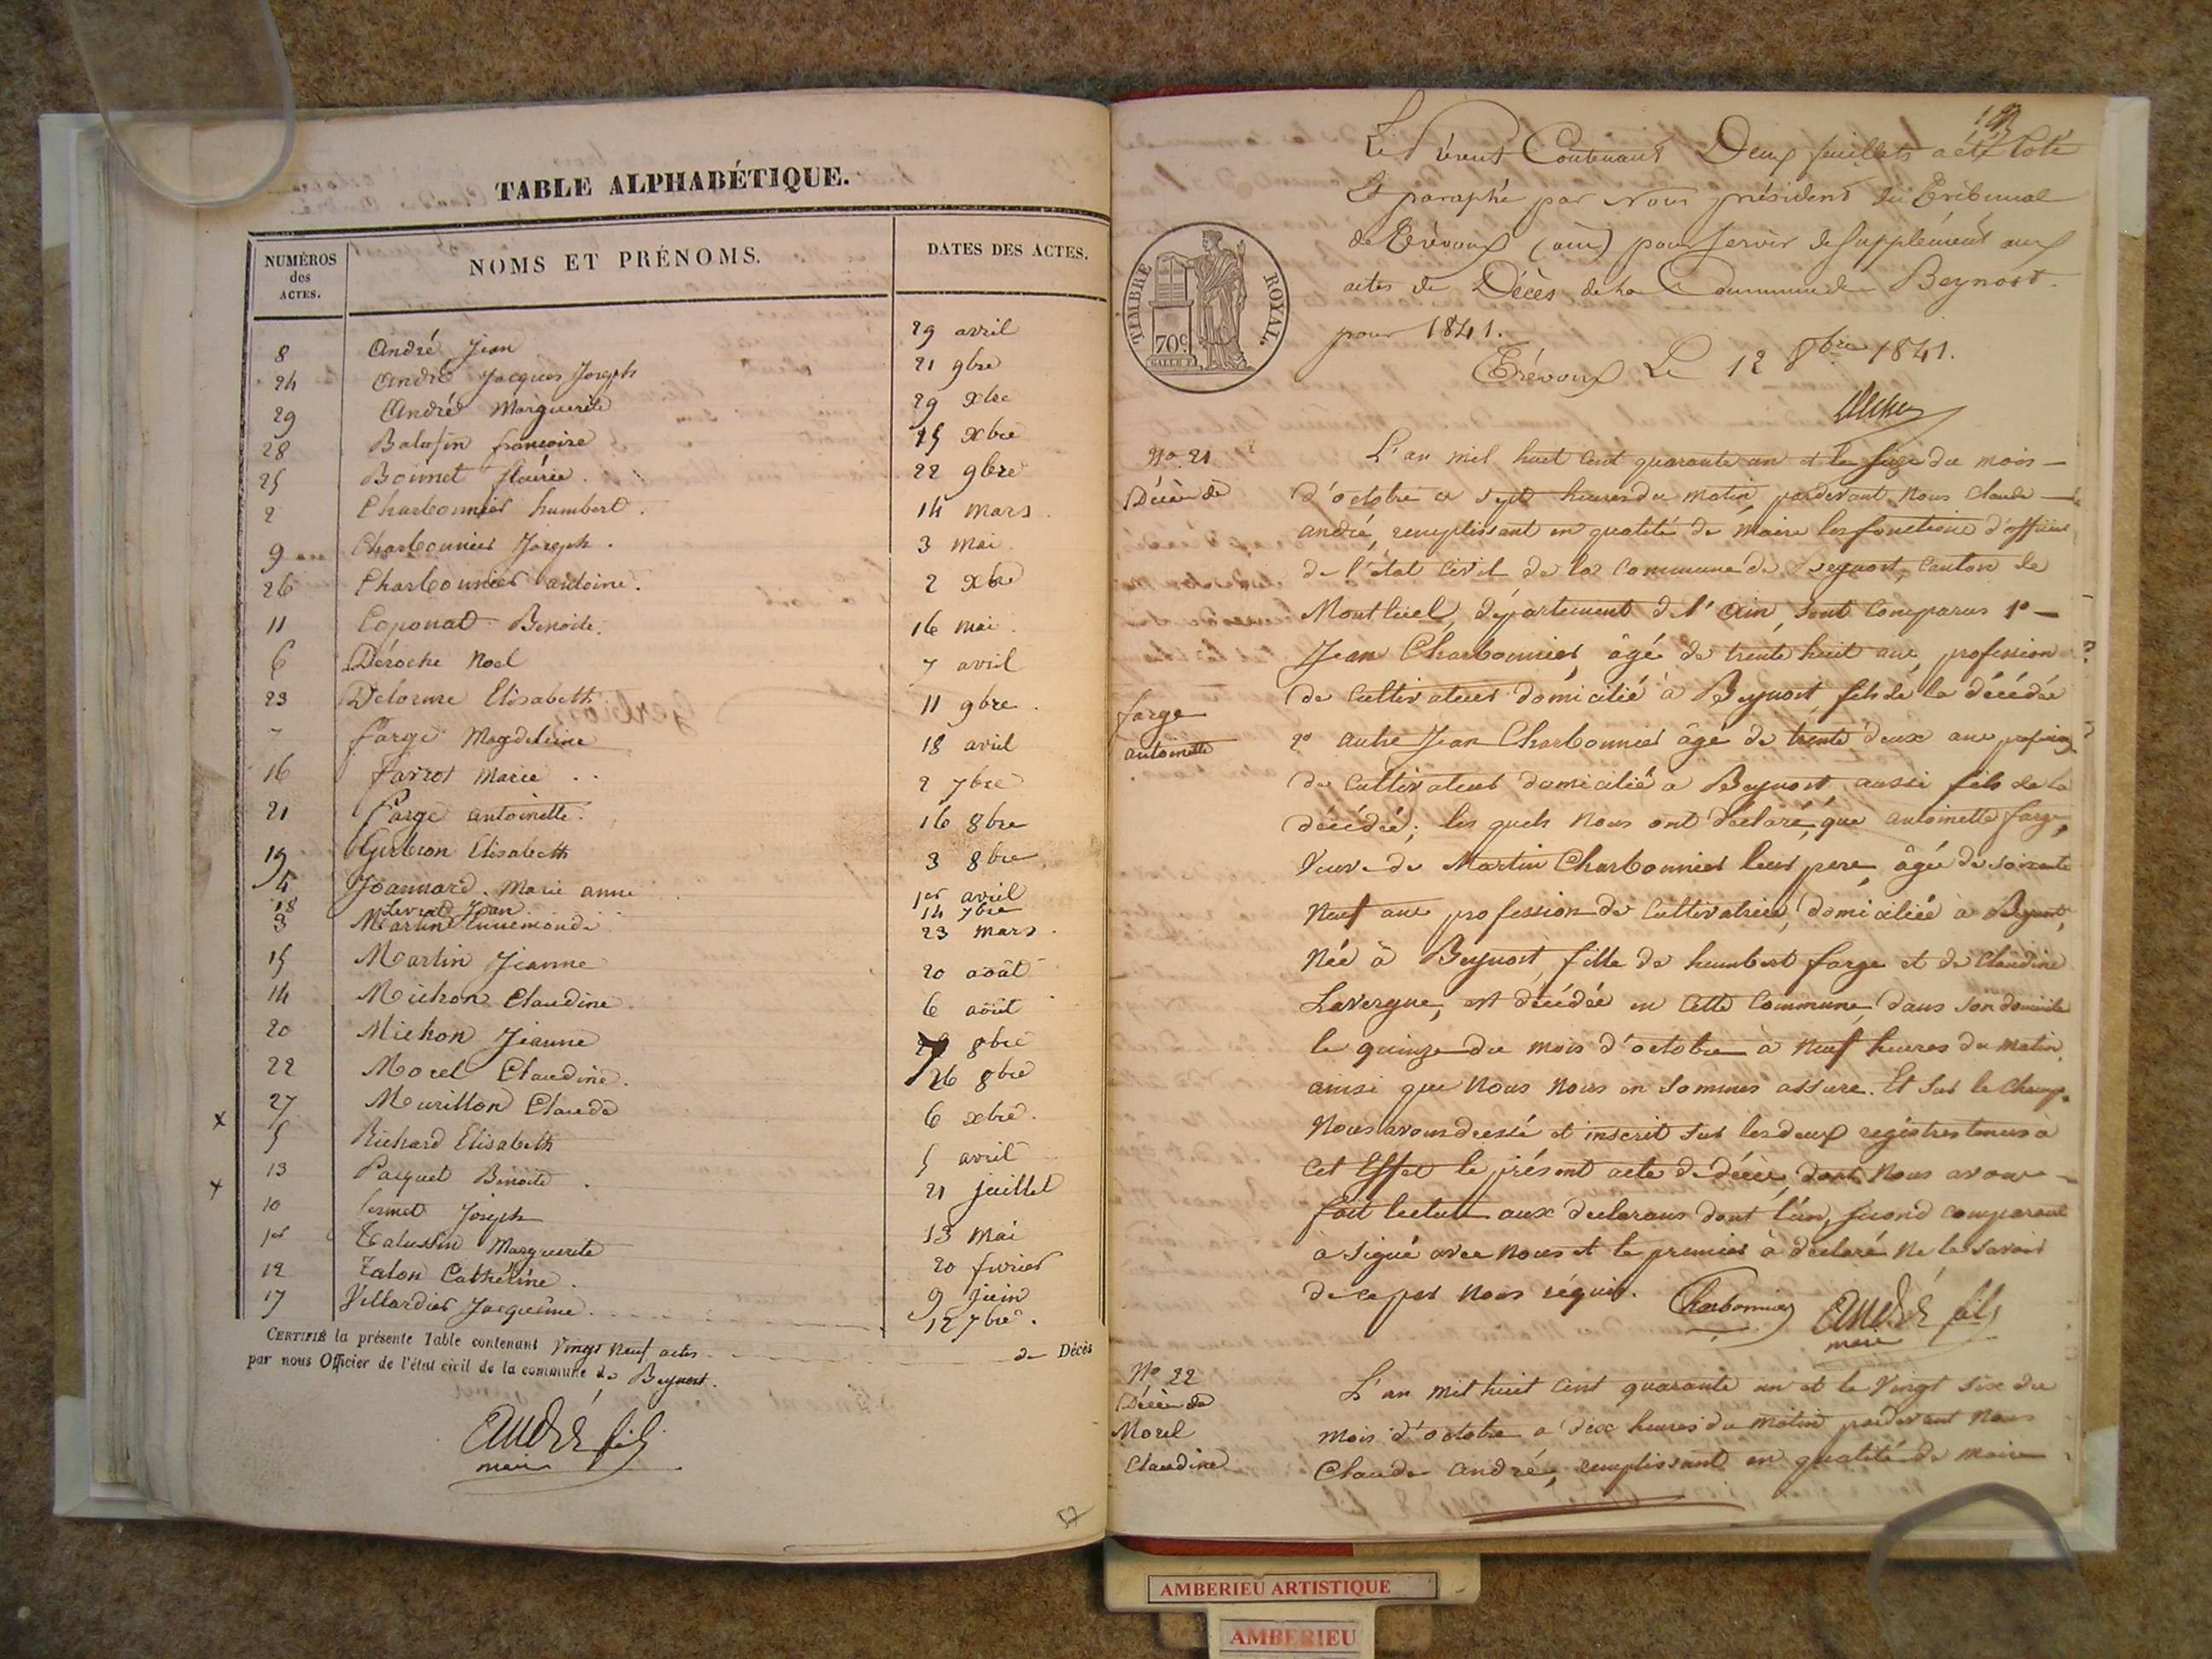 TABLE ALPHABÉTIQUE.
NUMÉROS des ACTES. NOMS ET PRÉNOMS. DATES DES ACTES.
8 André Jean 29 avril
24 André Jacques Joseph 21 9bre
29 André Marguerite 29 xbre
28 Balufin françoise 25 xbre
25 Boinnet fleurie. 22 9bre
2 Charbonnier humbert. 14 mars.
9 Charbonnier Joseph. 3 mai.
26 Charbonnier antoine. 2 xbre
11 Coponat Benoite. 16 mai.
6 Déroche Noel 7 avril
23 Delorme Elisabeth 11 9bre.
7 farge Magdeleine 18 avril
16 Farrot Marie .. 2 7bre
21 Farge antoinette. 16 8bre
19 Gerbion Elisabeth 3 8bre.
4 Joannard. Marie anne 1er avril
18 Levrat Jean 14 7bre
3 Martin Ennemonde 23 mars.
15 Martin Jeanne 20 août
14 Michon Claudine. 6 août
20 Michon Jeanne 8bre
22 Morel Claudine. 26 8bre
27 Murillon Claude 6 xbre.
x
5 Richard Elisabeth 5 avril
13 Paquet Benoite. 21 juillet
x
10 Joseph 13 mai
1er Talussin Marguerite 20 fevrier
12 Talon Cathérine. 9 juin
17 Villardier Jacqueme. 12 7bre.
CERTIFIÉ la présente Table contenant Vingt Neuf actes de Décès
par nous Officier de l'état civil de la commune de Beynost.
André fils
maire
57
Le Présent Contenant Deux feuillets a été Coté
Et paraphé par Nous président du Tribunal
de Trévoux (ain) pour Servir de Supplément aux
actes de Décès de la Commune de Beynost.
pour 1841.
Trévoux Le 12 8bre 1841.
TIMBRE ROYAL.
70c
No. 21
Décès de
farge
antoinette
L'an mil huit cent quarante un et le seize du mois
d'octobre a sept heures du matin, pardevant Nous Claude
andré, remplissant en qualité de Maire les fonctions d'officier
de l'état civil de la Commune de Beynost, Canton de
Montluel, département de l'Ain, sont Comparus 1o
Jean Charbonnier, âgé de trente huit ans, profession
de Cultivateur domicilié à Beynost, fils de la décédée
2o autre Jean Charbonnier âgé de trente deux ans profession
de Cultivateur domicilié a Beynost, aussi fils de la
décédée; les quels Nous ont déclaré, que antoinette farge,
Veuve de Martin Charbonnier leur pere, âgée de soixante
Neuf ans profession de Cultivatrice, domiciliée a Beynost,
Née à Beynost, fille de humbert farge et de Claudine
Lavergne, est décédée en Cette Commune, dans Son domicile
le quinze du mois d'octobre à Neuf heures du matin.
ainsi que Nous Nous en Sommes assure. Et Sur le Champ.
Nous avons dressé et inscrit Sur les deux registres tenus à
Cet Effet le présent acte de décès, dont Nous avons
fait lecture aux declarans dont l'un, second comparant
a Signé avec Nous et le premier à déclaré Ne le Savoir
de ce par Nous réquis. Charbonnier André fils
maire
No 22
Décès de
Morel
Claudine
L'an mil huit Cent quarante un et le Vingt Six du
mois d'octobre a dix heures du matin pardevant Nous
Claude André, remplissant en qualité de Maire
AMBERIEU ARTISTIQUE
AMBERIEU